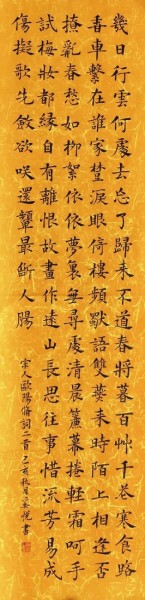 幾日行雲何處去忘了歸來不道春將暮百艸千寒食路
香車繫在誰家淚眼倚樓頻獨語雙燕來時陌上相逢否
撩亂春愁如柳絮依依夢裏無尋處清晨簾幕捲輕霜呵手
試梅妝都緣自有離恨故畫作遠山長思往事惜流芳易成
傷擬歌先斂欲咲還顰最斷人腸
宋人歐陽脩詞二首己亥秋月悅書